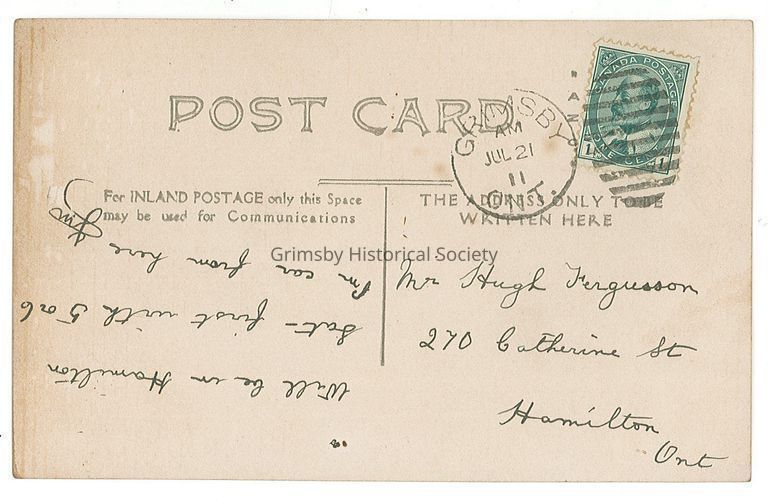 POST CARD
CANADA POSTAGE
ONE CENT
1 1
GRIMSBY
AM
JUL 21
11
ONT.
For INLAND POSTAGE only this Space
may be used for Communications
THE ADDRESS ONLY TO BE
WRITTEN HERE
Grimsby Historical Society
Mr Hugh Fergusson
270 Catherine St
Hamilton
Ont
Will be in Hamilton
Sat – first with 5 or 6
Pm car from here
Jim